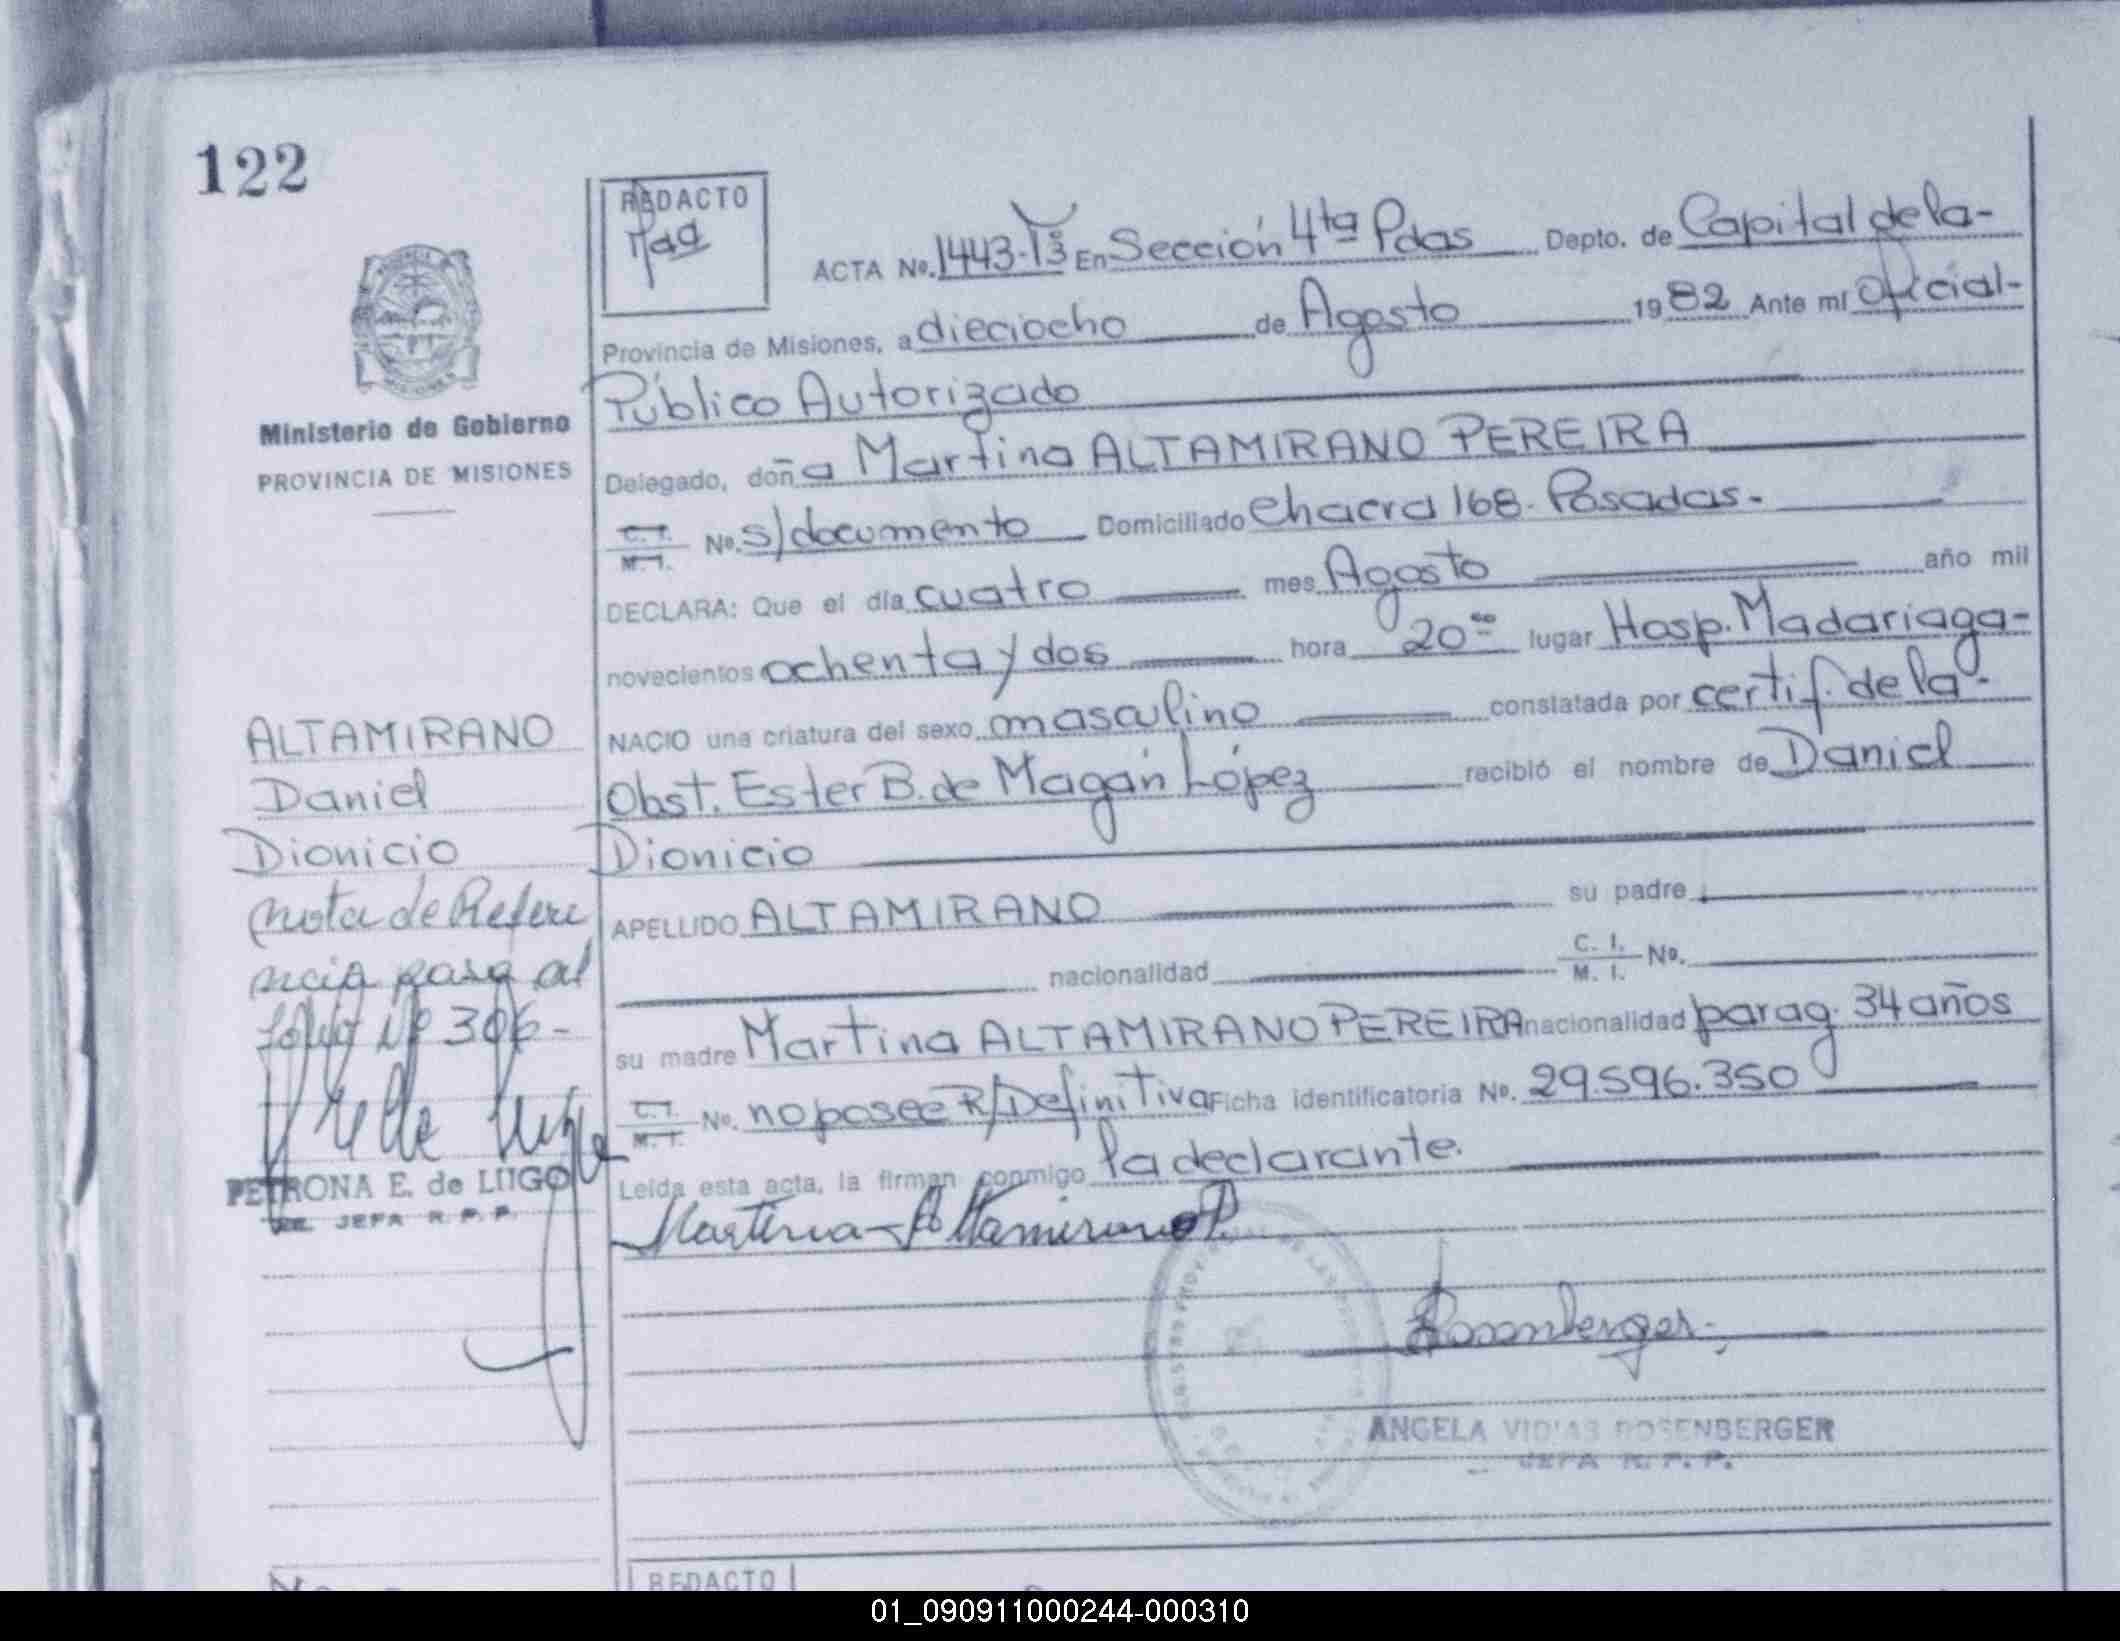 122
REDACTO
ACTA No. 1443-Tº 13 En Sección 4ta Pdas Depto. de Capital de la-
Provincia de Misiones, a dieciocho de Agosto 1982 Ante mí Oficial-
Público Autorizado
Delegado, doña Martina ALTAMIRANO PEREIRA
C.I. M.I. No. s/documento Domiciliado Chacra 168. Posadas.
DECLARA: Que el día cuatro mes Agosto año mil
novecientos ochenta y dos hora 20 lugar Hosp. Madariaga-
NACIO una criatura del sexo masculino constatada por certif. de la-
Obst. Ester B. de Magán López recibió el nombre de Daniel
Dionicio
APELLIDO ALTAMIRANO su padre
nacionalidad C. I. M. I. No.
su madre Martina ALTAMIRANO PEREIRA nacionalidad parag. 34 años
C.I. M.I. No. no posee R/Definitiva Ficha identificatoria No. 29.596.350
Leída esta acta, la firman conmigo la declarante.
Martina Altamirano P.
Rosenberger
ANGELA VIDIAS ROSENBERGER
JEFA R. P. P.
Ministerio de Gobierno
PROVINCIA DE MISIONES
ALTAMIRANO
Daniel
Dionicio
nota de Refere
ncia pasa al
folio Nº 306-
PETRONA E. de LUGO
JEFA R. P. P.
REDACTO
01_090911000244-000310